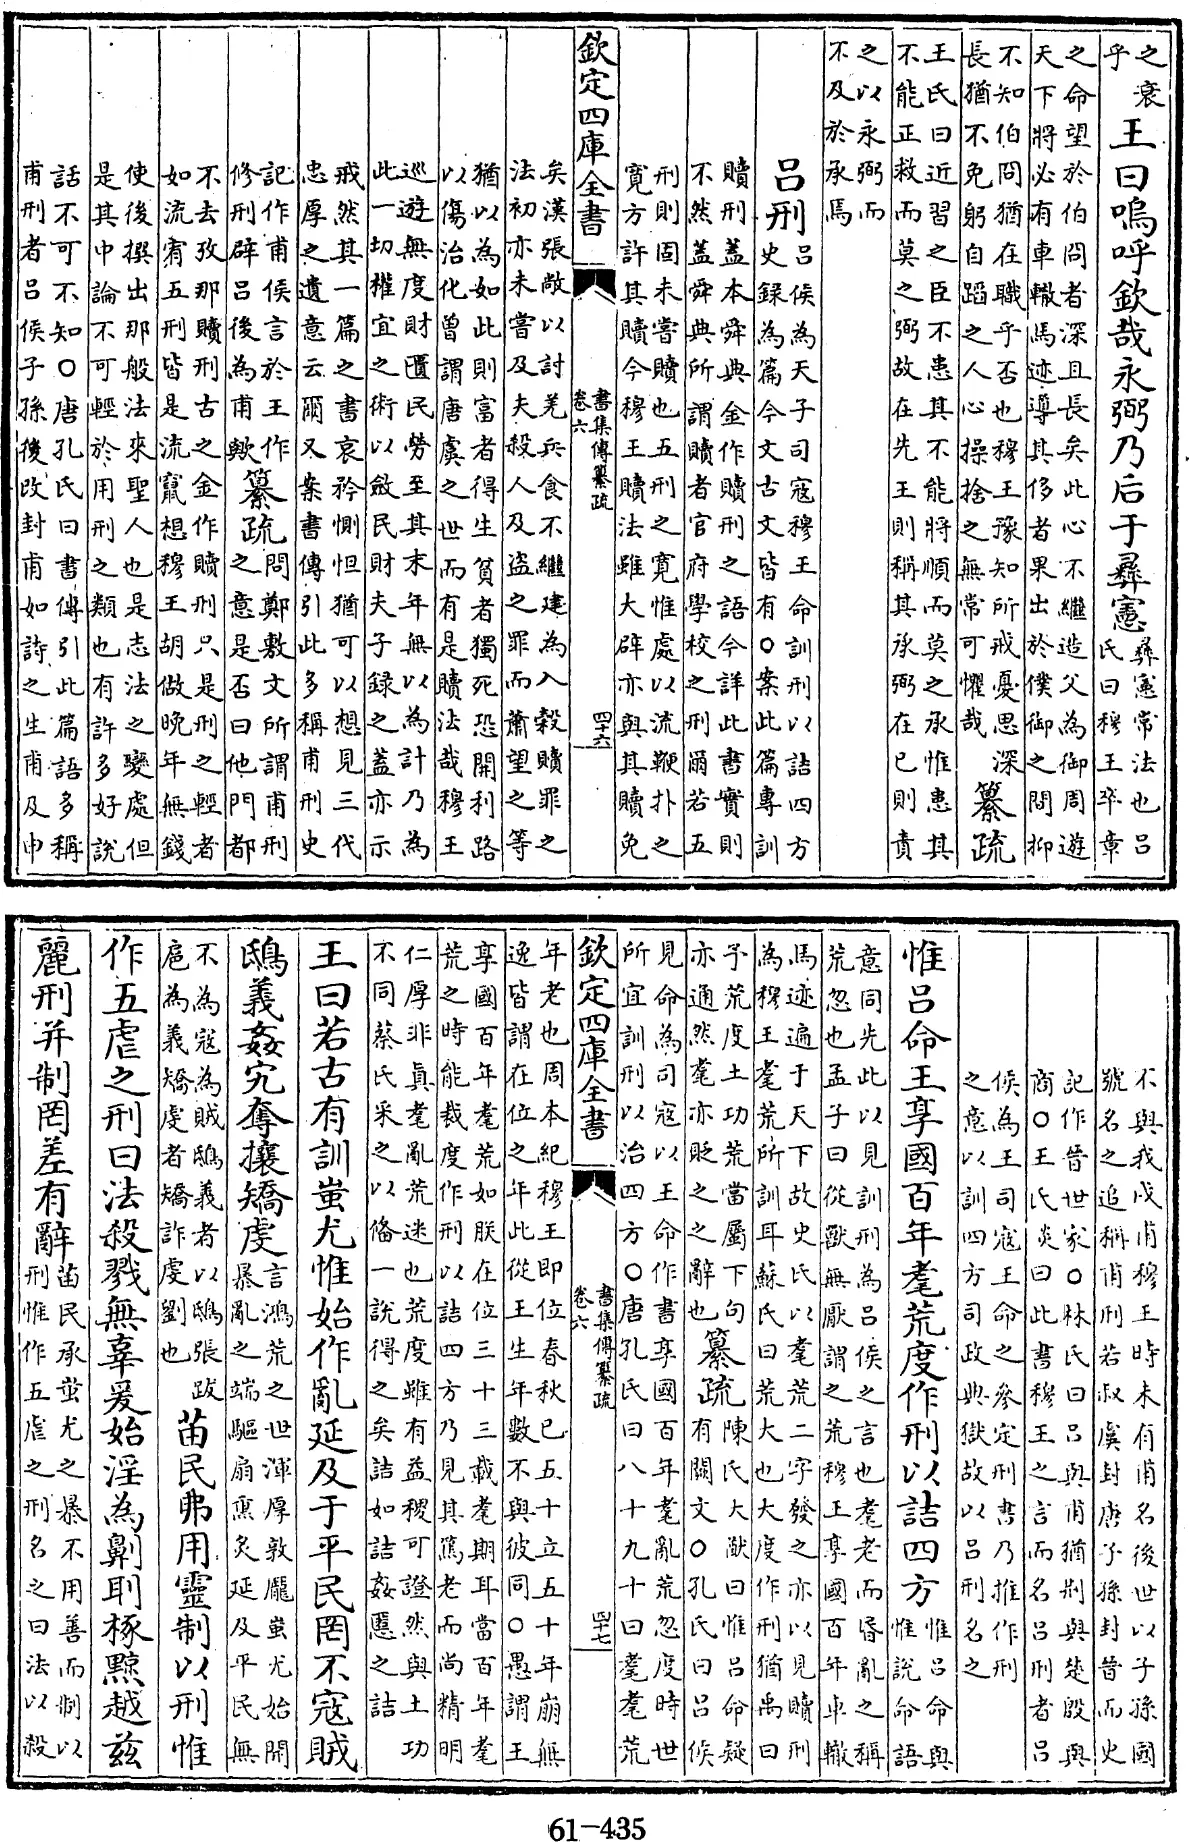 之衰
乎
王曰嗚呼欽哉永弼乃后于彞憲
彞憲常法也呂
氏曰穆王卒章
之命望於伯冏者深且長矣此心不繼造父為御周遊
天下將必有車轍馬迹導其侈者果出於僕御之間抑
不知伯冏猶在職乎否也穆王豫知所戒憂思深
長猶不免躬自蹈之人心操捨之無常可懼哉
纂疏
王氏曰近習之臣不患其不能將順而莫之承惟患其
不能正救而莫之弼故在先王則稱其承弼在已則責
之以永弼而
不及於承焉
呂刑
呂侯為天子司寇穆王命訓刑以詰四方
史錄為篇今文古文皆有○案此篇專訓
贖刑蓋本舜典金作贖刑之語今詳此書實則
不然蓋舜典所謂贖者官府學校之刑爾若五
刑則固未嘗贖也五刑之寛惟處以流鞭扑之
寛方許其贖今穆王贖法雖大辟亦與其贖免
欽定四庫全書
書集傳纂疏
卷六
四十六
矣漢張敞以討羌兵食不繼建為入穀贖罪之
法初亦未嘗及夫殺人及盜之罪而蕭望之等
猶以為如此則富者得生貧者獨死恐開利路
以傷治化曾謂唐虞之世而有是贖法哉穆王
巡遊無度財匱民勞至其末年無以為計乃為
此一切權宜之術以斂民財夫子録之蓋亦示
戒然其一篇之書哀矜惻怛猶可以想見三代
忠厚之遺意云爾又案書傳引此多稱甫刑史
記作甫侯言於王作
修刑辟呂後為甫歟
纂疏
問鄭敷文所謂甫刑
之意是否曰他門都
不去攷那贖刑古之金作贖刑只是刑之輕者
如流宥五刑皆是流竄想穆王胡做晚年無錢
使後撰出那般法來聖人也是志法之變處但
是其中論不可輕於用刑之類也有許多好說
話不可不知○唐孔氏曰書傳引此篇語多稱
甫刑者呂侯子孫後改封甫如詩之生甫及申
不與我戍甫穆王時未有甫名後世以子孫國
號名之追稱甫刑若叔虞封唐子孫封晉而史
記作晉世家○林氏曰呂與甫猶荆與楚殷與
商○王氏炎曰此書穆王之言而名呂刑者呂
侯為王司寇王命之參定刑書乃推作刑
之意以訓四方司政典獄故以呂刑名之
惟呂命王享國百年耄荒度作刑以詰四方
惟呂命與
惟說命語
意同先此以見訓刑為呂侯之言也耄老而昏亂之稱
荒忽也孟子曰從獸無厭謂之荒穆王享國百年車轍
馬迹遍于天下故史氏以耄荒二字發之亦以見贖刑
為穆王耄荒所訓耳蘇氏曰荒大也大度作刑猶禹曰
予荒度土功荒當屬下句
亦通然耄亦貶之之辭也
纂疏
陳氏大猷曰惟呂命疑
有闕文○孔氏曰呂侯
見命為司寇以王命作書享國百年耄亂荒忽度時世
所宜訓刑以治四方○唐孔氏曰八十九十曰耄耄荒
欽定四庫全書
書集傳纂疏
卷六
四十七
年老也周本紀穆王即位春秋已五十立五十年崩無
逸皆謂在位之年此從王生年數不與彼同○愚謂王
享國百年耄荒如朕在位三十三載耄期耳當百年耄
荒之時能裁度作刑以詰四方乃見其篤老而尚精明
仁厚非真耄亂荒迷也荒度雖有益稷可證然與土功
不同蔡氏采之以備一說得之矣詰如詰姦慝之詰
王曰若古有訓蚩尤惟始作亂延及于平民罔不寇賊
鴟義姦宄奪攘矯虔
言鴻荒之世渾厚敦龐蚩尤始開
暴亂之端驅扇熏炙延及平民無
不為寇為賊鴟義者以鴟張跋
扈為義矯虔者矯詐虔劉也
苗民弗用靈制以刑惟
作五虐之刑曰法殺戮無辜爰始淫為劓刵椓黥越茲
麗刑并制罔差有辭
苗民承蚩尤之暴不用善而制以
刑惟作五虐之刑名之曰法以殺
61-435